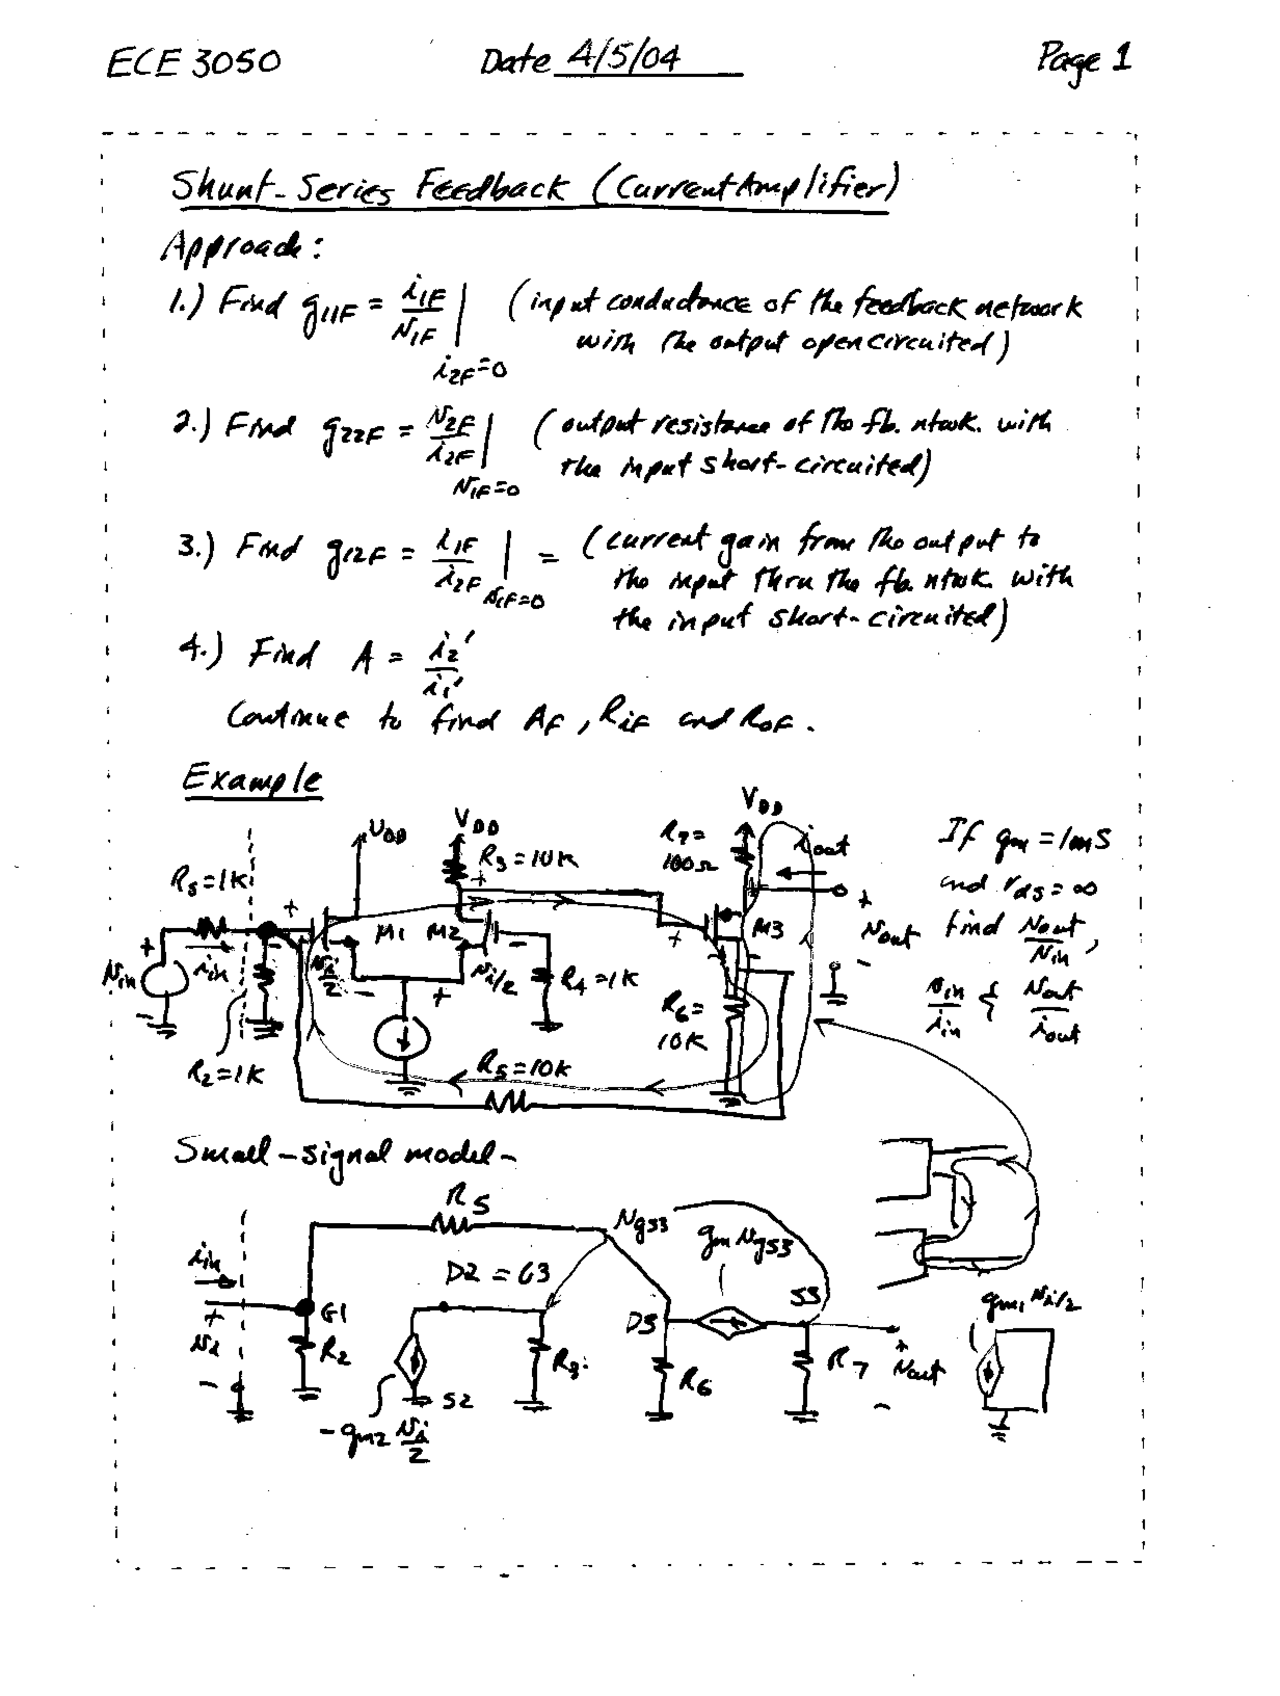 ECE 3050 Date 4/5/04 Page 1
Shunt-Series Feedback (Current Amplifier)
Approach:
1.) Find g11F = i1F / v1F | i2F=0 (input conductance of the feedback network
with the output open circuited)
2.) Find g22F = v2F / i2F | v1F=0 (output resistance of the fb. ntwk. with
the input short-circuited)
3.) Find g12F = i1F / i2F | v1F=0 = (current gain from the output to
the input thru the fb. ntwk. with
the input short-circuited)
4.) Find A = i2' / i1'
Continue to find AF, RiF and RoF.
Example
VDD
VDD
VDD
R7=
100Ω
iout
R3=10K
RS=1K
If gm=1mS
and rds=∞
find vout/vin,
vin/iin & vout/iout
M1 M2
M3
vout
vin
iin
vi/2
vi/2
R4=1K
R6=
10K
R2=1K
R5=10K
Small-signal model-
R5
vgs3
gm vgs3
iin
D2=G3
S3
gm1 vi/2
G1
D3
vi
R2
R3
R6
R7
vout
S2
-gm2 vi/2